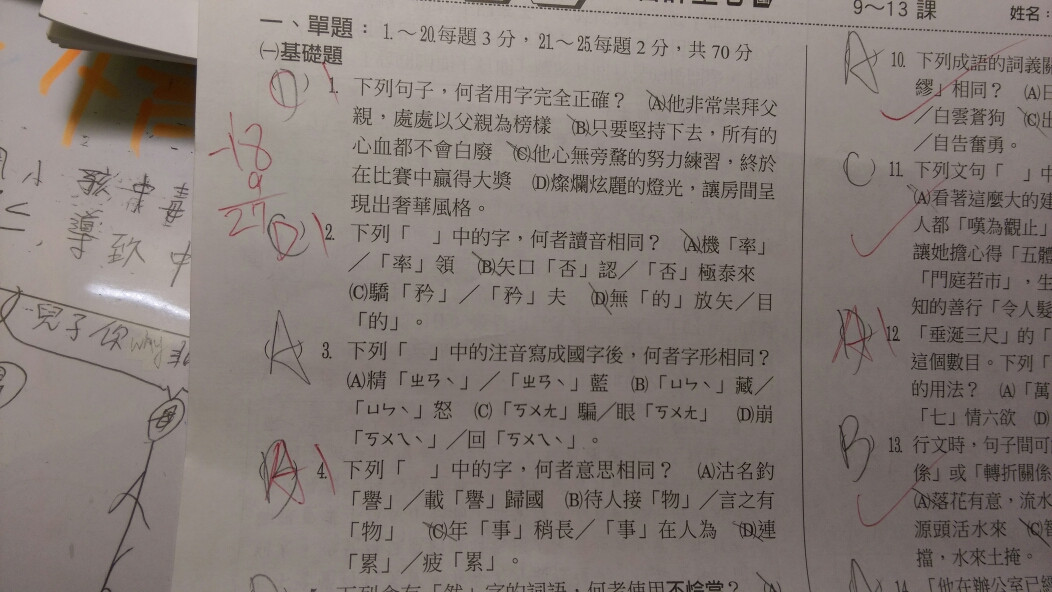 9～13課
姓名：
一、單題：1.～20.每題3分，21.～25.每題2分，共70分
㈠基礎題
1. 下列句子，何者用字完全正確？ (A)他非常崇拜父
親，處處以父親為榜樣 (B)只要堅持下去，所有的
心血都不會白廢 (C)他心無旁鶩的努力練習，終於
在比賽中贏得大獎 (D)燦爛炫麗的燈光，讓房間呈
現出奢華風格。
-18
9
27
D
2. 下列「　」中的字，何者讀音相同？ (A)機「率」
／「率」領 (B)矢口「否」認／「否」極泰來
(C)驕「矜」／「矜」夫 (D)無「的」放矢／目
「的」。
A
3. 下列「　」中的注音寫成國字後，何者字形相同？
(A)精「ㄓㄢˋ」／「ㄓㄢˋ」藍 (B)「ㄩㄣˋ」藏／
「ㄩㄣˋ」怒 (C)「ㄎㄨㄤ」騙／眼「ㄎㄨㄤ」 (D)崩
「ㄎㄨㄟˋ」／回「ㄎㄨㄟˋ」。
A
4. 下列「　」中的字，何者意思相同？ (A)沽名釣
「譽」／載「譽」歸國 (B)待人接「物」／言之有
「物」 (C)年「事」稍長／「事」在人為 (D)連
「累」／疲「累」。
下列含有「然」字的詞語，何者使用不恰當？
A
10. 下列成語的詞義關
繆」相同？ (A)
／白雲蒼狗 (C)出
／自告奮勇。
C
11. 下列文句「　」中
(A)看著這麼大的建
人都「嘆為觀止」
讓她擔心得「五體
「門庭若市」，生
知的善行「令人髮
A
12. 「垂涎三尺」的「
這個數目。下列「
的用法？ (A)「萬
「七」情六欲 (D)
B
13. 行文時，句子間可
係」或「轉折關係
(A)落花有意，流水
源頭活水來 (C)
擋，水來土掩。
14. 「他在辦公室已經
兒子
你
why
母
中
致
導